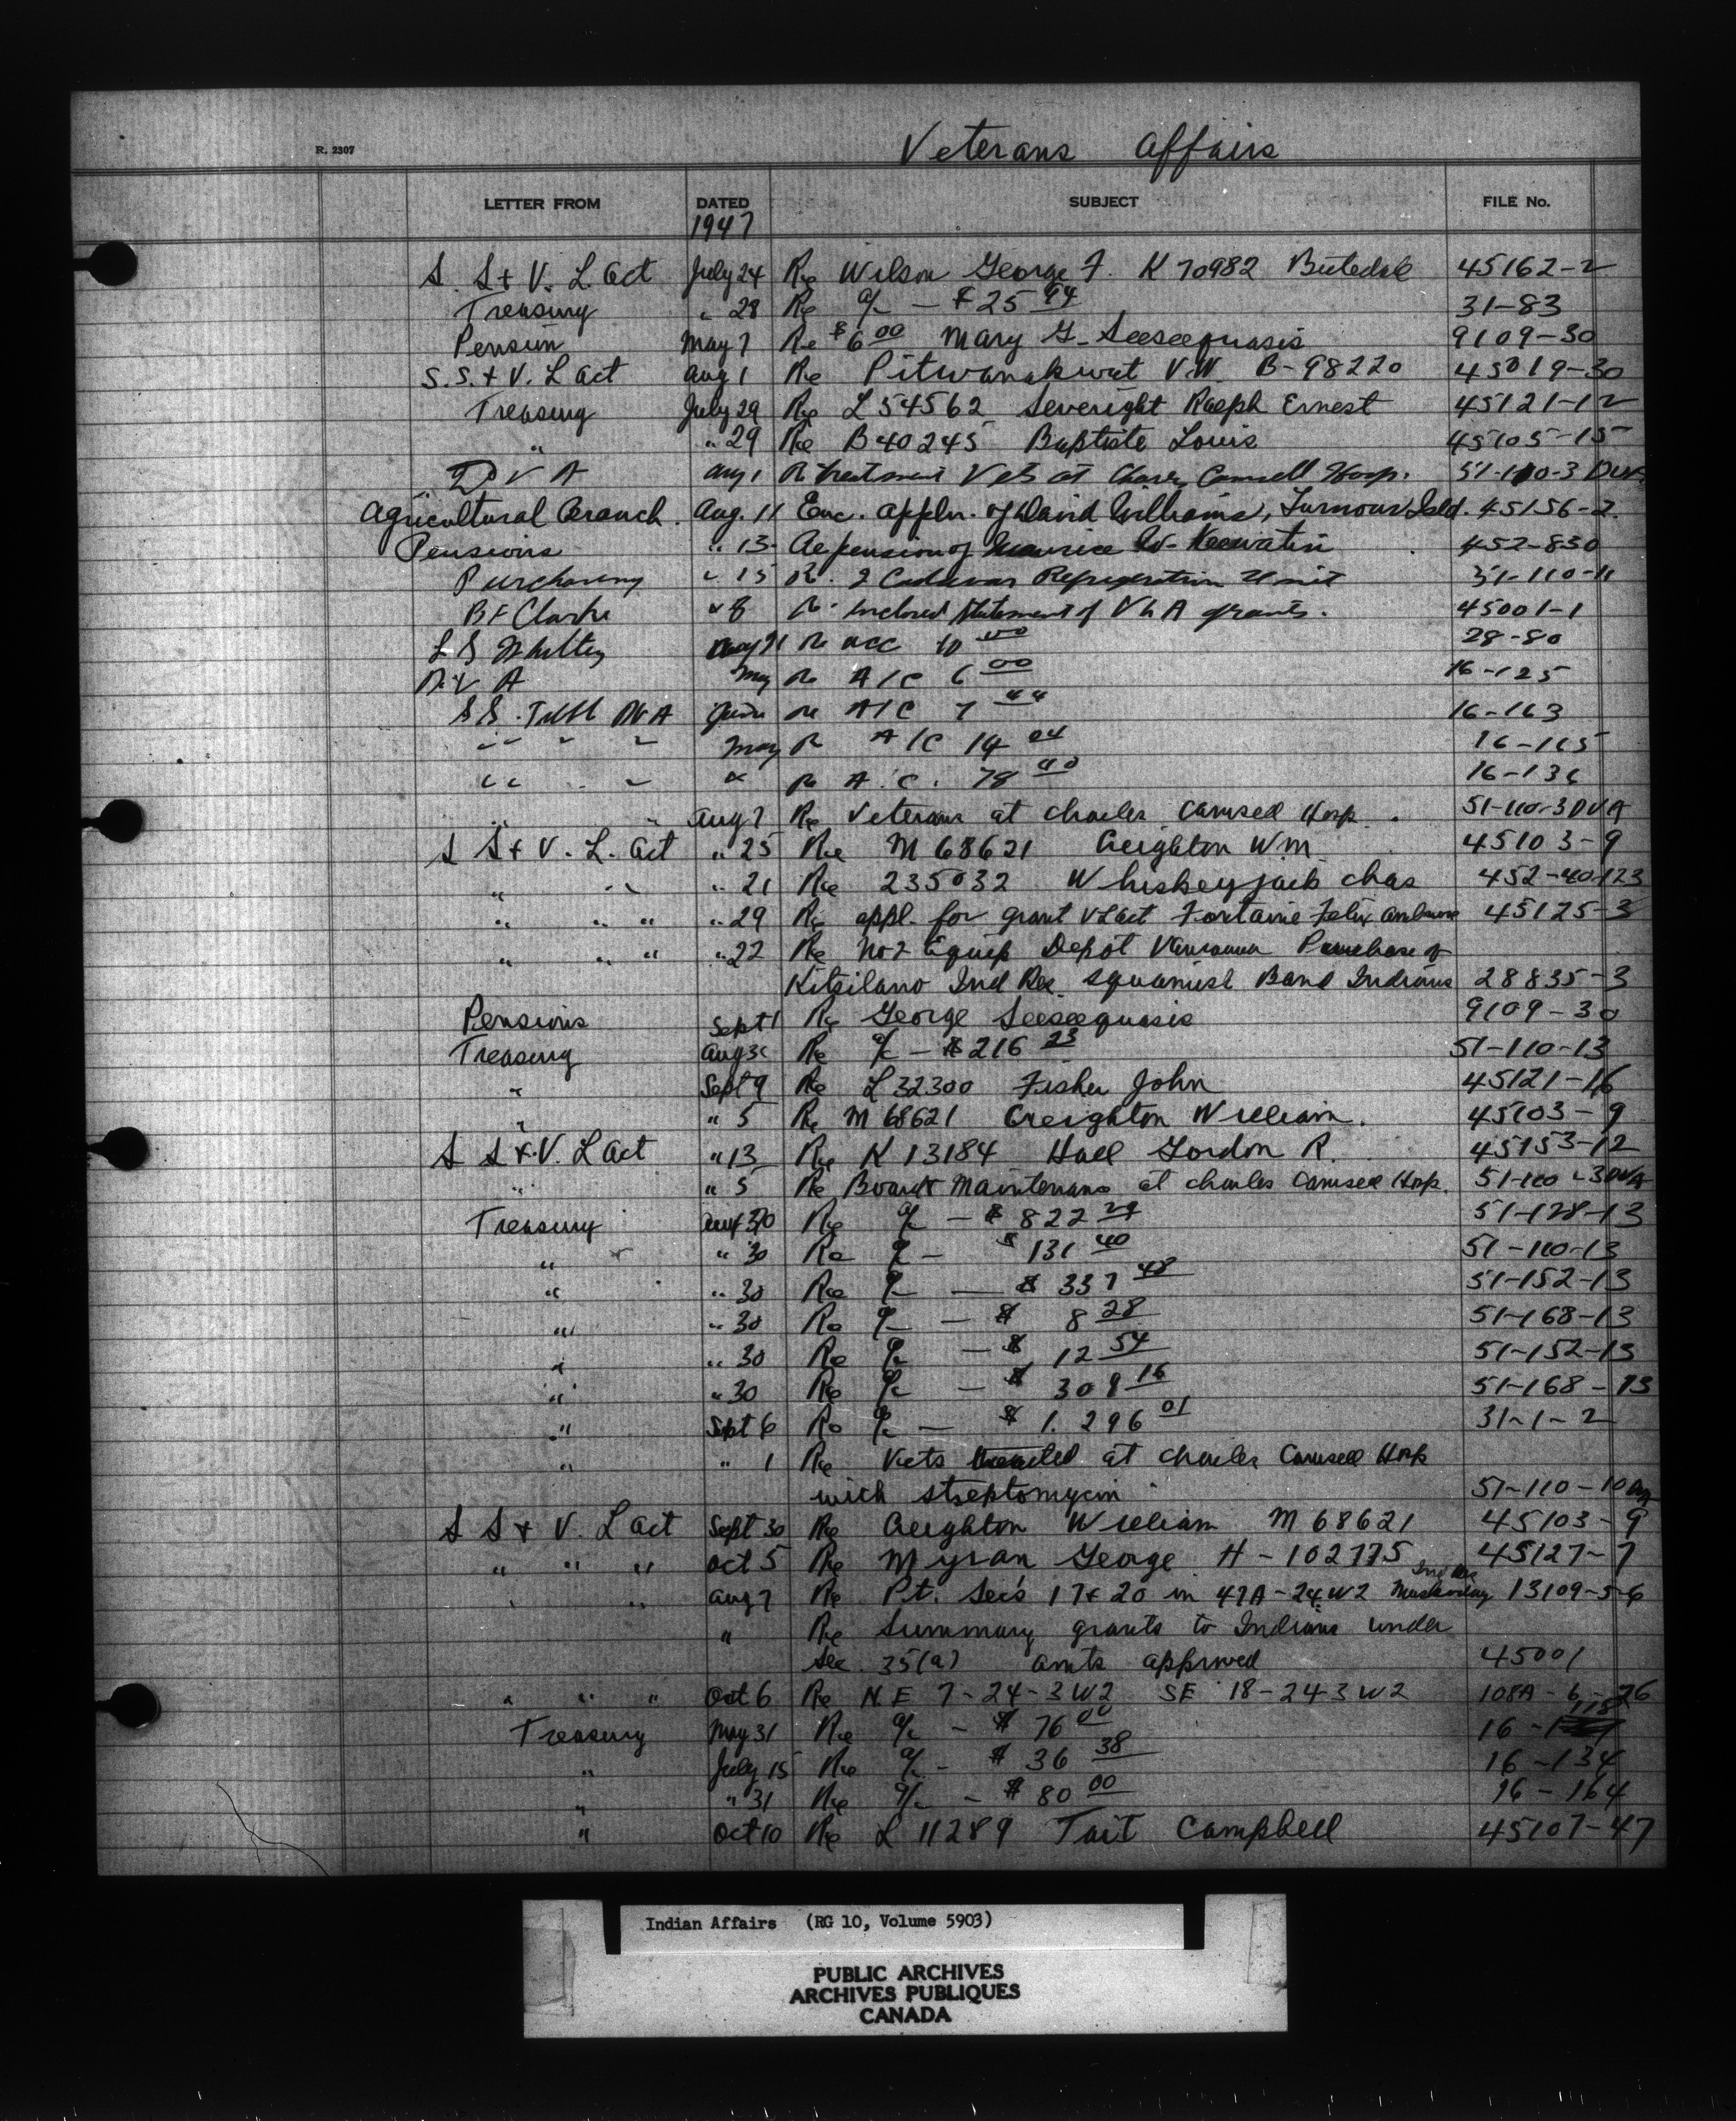 Veterans Affairs
R. 2307
LETTER FROM DATED SUBJECT FILE No.
1947
S. S + V. L. Act July 24 Re Wilson George F. K 70982 Butedale 45162-2
Treasury " 28 Re a/c - $25 94 31-83
Pension May 7 Re $6 00 Mary G. Seeseequasis 9109-30
S.S. + V. L Act Aug 1 Re Pitwanakwat V.W. B-98220 45019-30
Treasury July 29 Re L 54562 Severight Ralph Ernest 45121-12
" " 29 Re B 40245 Baptiste Louis 45105-15
D V A Aug 1 Re treatment Vets at Charles Camsell Hosp. 51-110-3 DVA
Agricultural Branch. Aug. 11 Enc. appln. of David Williams, Turnour Isld. 45156-2.
Pensions " 13 Re pension of Maurice W. Keewatin 452-830
Purchasing " 15 Re. 2 Cadaver Refrigeration Unit 51-110-11
B F Clarke " 8 Re. enclosed statement of V L A grants. 45001-1
L S Whitley 21 Re acc 10 00 28-80
D. V A May Re A/C 6 00 16-125
S S. Treas DVA June Re A/C 7 44 16-163
" " " May Re A/C 14 04 16-165
" " " Re A.C. 78 40 16-136
" " Aug 7 Re Veterans at Charles Camsell Hosp. 51-110-3 DVA
S S + V. L. Act " 25 Re M 68621 Creighton Wm 45103-9
" " " 21 Re 235032 Whiskeyjack Chas 452-40-123
" " " " 29 Re appl. for grant V L Act Fontaine Felix Ambrose 45125-3
" " " " 22 Re No 2 Equip Depot Vancouver Purchase of
Kitsilano Ind Res. Squamish Band Indians 28835-3
Pensions Sept 1 Re George Seeseequasis 9109-30
Treasury Aug 30 Re a/c - $216 23 51-110-13
" Sept 9 Re L 32300 Fisher John 45121-16
" " 5 Re M 68621 Creighton William. 45103-9
S S + V. L Act " 13 Re K 13184 Hall Gordon R. 45153-12
" " 5 Re Board + Maintenance at Charles Camsell Hosp. 51-110-3 DVA
Treasury Aug 30 Re a/c - $822 29 51-128-13
" " 30 Re a/c - $131 40 51-110-13
" " 30 Re a/c - $337 48 51-152-13
" " 30 Re a/c - $8 28 51-168-13
" " 30 Re a/c - $12 54 51-152-13
" " 30 Re a/c - $309 16 51-168-13
" Sept 6 Re a/c - $1.296 01 31-1-2
" " 1 Re Vets treated at Charles Camsell Hosp
with streptomycin 51-110-10
S S + V. L Act Sept 30 Re Creighton William M 68621 45103-9
" " " Oct 5 Re Myran George H-102775 45127-7
" " Aug 7 Re Pt. Sec's 17 + 20 in 47A-24 W2 Muskoday Ind Res 13109-5-6
" Re Summary grants to Indians under
Sec. 35(a) amts approved 45001
" " " Oct 6 Re N.E 7-24-3 W2 SE 18-24-3 W2 108A-6-26
Treasury May 31 Re a/c - $76 00 16-118
" July 15 Re a/c - $36 38 16-134
" " 31 Re a/c - $80 00 16-164
" Oct 10 Re L 11289 Tait Campbell 45107-47
Indian Affairs (RG 10, Volume 5903)
PUBLIC ARCHIVES
ARCHIVES PUBLIQUES
CANADA